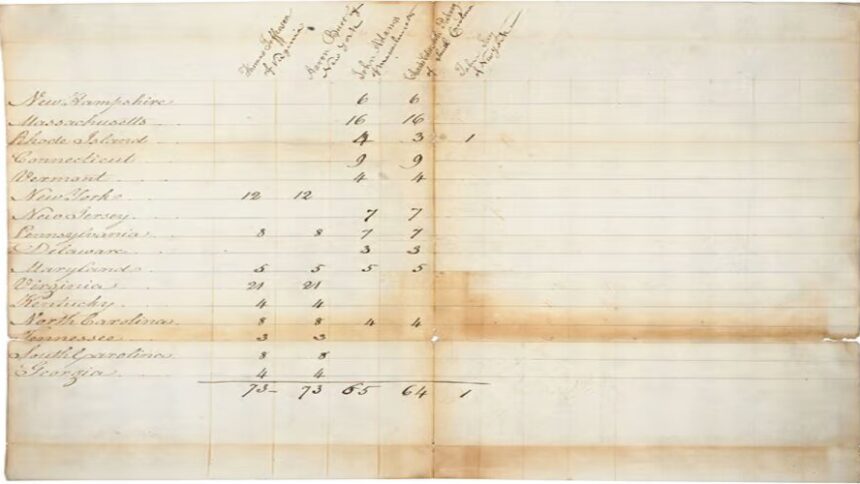 Thomas Jefferson of Virginia
Aaron Burr of New York
John Adams of Massachusetts
Charles Cotesworth Pinckney of South Carolina
John Jay of New York
New Hampshire 6 6
Massachusetts 16 16
Rhode Island 4 3 1
Connecticut 9 9
Vermont 4 4
New York 12 12
New Jersey 7 7
Pennsylvania 8 8 7 7
Delaware 3 3
Maryland 5 5 5 5
Virginia 21 21
Kentucky 4 4
North Carolina 8 8 4 4
Tennessee 3 3
South Carolina 8 8
Georgia 4 4
73 73 65 64 1